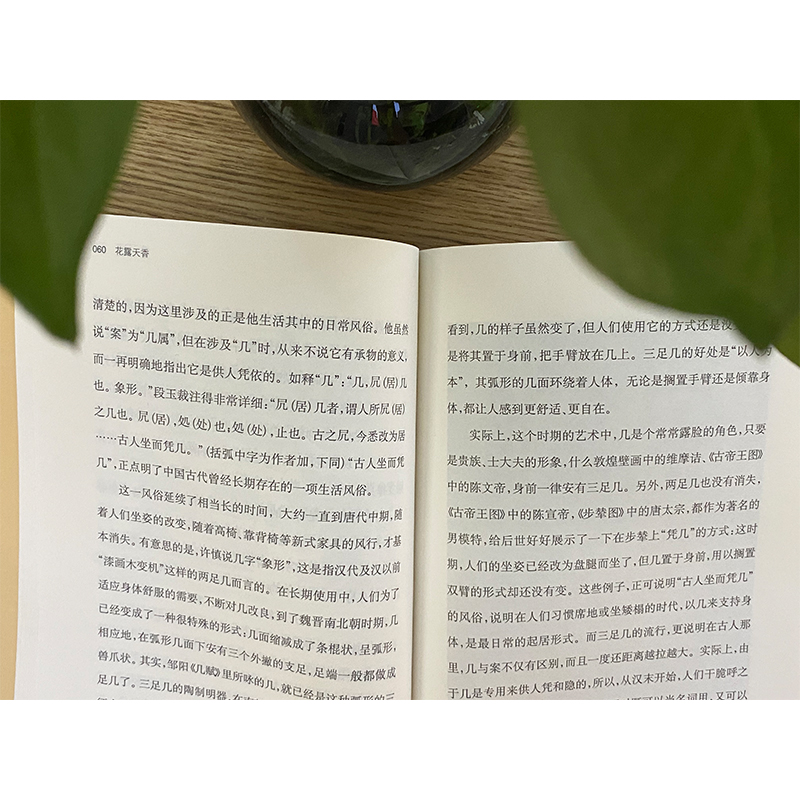 060 花露天香
清楚的，因为这里涉及的正是他生活其中的日常风俗。他虽然
说“案”为“几属”，但在涉及“几”时，从来不说它有承物的意义，
而一再明确地指出它是供人凭依的。如释“几”：“几，凥（居）几
也。象形。”段玉裁注得非常详细：“凥（居）几者，谓人所凥（居）
之几也。凥（居），処（处）也；処（处），止也。古之凥，今悉改为居
……古人坐而凭几。”（括弧中字为作者加，下同）“古人坐而凭
几”，正点明了中国古代曾经长期存在的一项生活风俗。
这一风俗延续了相当长的时间，大约一直到唐代中期，随
着人们坐姿的改变，随着高椅、靠背椅等新式家具的风行，才基
本消失。有意思的是，许慎说几字“象形”，这是指汉代及汉以前
“漆画木变机”这样的两足几而言的。在长期使用中，人们为了
适应身体舒服的需要，不断对几改良，到了魏晋南北朝时期，几
已经变成了一种很特殊的形式；几面缩减成了条棍状，呈弧形，
相应地，在弧形几面下安有三个外撇的支足，足端一般都做成
兽爪状。其实，邹阳《几赋》里所咏的几，就已经是这种弧形的三
足几了。三足几的陶制明器，在
看到，几的样子虽然变了，但人们使用它的方式还是没
是将其置于身前，把手臂放在几上。三足几的好处是“以人为
本”，其弧形的几面环绕着人体，无论是搁置手臂还是倾靠身
体，都让人感到更舒适、更自在。
实际上，这个时期的艺术中，几是个常常露脸的角色，只要
是贵族、士大夫的形象，什么敦煌壁画中的维摩诘、《古帝王图》
中的陈文帝，身前一律安有三足几。另外，两足几也没有消失，
《古帝王图》中的陈宣帝，《步辇图》中的唐太宗，都作为著名的
男模特，给后世好好展示了一下在步辇上“凭几”的方式；这时
期，人们的坐姿已经改为盘腿而坐了，但几置于身前，用以搁置
双臂的形式却还没有变。这些例子，正可说明“古人坐而凭几”
的风俗，说明在人们习惯席地或坐矮榻的时代，以几来支持身
体，是最日常的起居形式。而三足几的流行，更说明在古人那
里，几与案不仅有区别，而且一度还距离越拉越大。实际上，由
于几是专用来供人凭和隐的，所以，从汉末开始，人们干脆呼之